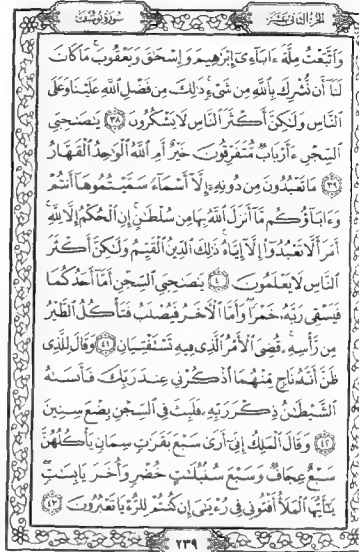 الجزء الثاني عشر
سورة يوسف
وَٱتَّبَعْتُ مِلَّةَ ءَابَآءِىٓ إِبْرَٰهِيمَ وَإِسْحَٰقَ وَيَعْقُوبَۚ مَا كَانَ
لَنَآ أَن نُّشْرِكَ بِٱللَّهِ مِن شَىْءٍۚ ذَٰلِكَ مِن فَضْلِ ٱللَّهِ عَلَيْنَا وَعَلَى
ٱلنَّاسِ وَلَٰكِنَّ أَكْثَرَ ٱلنَّاسِ لَا يَشْكُرُونَ ٣٨ يَٰصَٰحِبَىِ
ٱلسِّجْنِ ءَأَرْبَابٌ مُّتَفَرِّقُونَ خَيْرٌ أَمِ ٱللَّهُ ٱلْوَٰحِدُ ٱلْقَهَّارُ
٣٩ مَا تَعْبُدُونَ مِن دُونِهِۦٓ إِلَّآ أَسْمَآءً سَمَّيْتُمُوهَآ أَنتُمْ
وَءَابَآؤُكُم مَّآ أَنزَلَ ٱللَّهُ بِهَا مِن سُلْطَٰنٍۚ إِنِ ٱلْحُكْمُ إِلَّا لِلَّهِۚ
أَمَرَ أَلَّا تَعْبُدُوٓا۟ إِلَّآ إِيَّاهُۚ ذَٰلِكَ ٱلدِّينُ ٱلْقَيِّمُ وَلَٰكِنَّ أَكْثَرَ
ٱلنَّاسِ لَا يَعْلَمُونَ ٤٠ يَٰصَٰحِبَىِ ٱلسِّجْنِ أَمَّآ أَحَدُكُمَا
فَيَسْقِى رَبَّهُۥ خَمْرًاۖ وَأَمَّا ٱلْءَاخَرُ فَيُصْلَبُ فَتَأْكُلُ ٱلطَّيْرُ
مِن رَّأْسِهِۦۚ قُضِىَ ٱلْأَمْرُ ٱلَّذِى فِيهِ تَسْتَفْتِيَانِ ٤١ وَقَالَ لِلَّذِى
ظَنَّ أَنَّهُۥ نَاجٍ مِّنْهُمَا ٱذْكُرْنِى عِندَ رَبِّكَ فَأَنسَىٰهُ
ٱلشَّيْطَٰنُ ذِكْرَ رَبِّهِۦ فَلَبِثَ فِى ٱلسِّجْنِ بِضْعَ سِنِينَ
٤٢ وَقَالَ ٱلْمَلِكُ إِنِّىٓ أَرَىٰ سَبْعَ بَقَرَٰتٍ سِمَانٍ يَأْكُلُهُنَّ
سَبْعٌ عِجَافٌ وَسَبْعَ سُنۢبُلَٰتٍ خُضْرٍ وَأُخَرَ يَابِسَٰتٍۖ
يَٰٓأَيُّهَا ٱلْمَلَأُ أَفْتُونِى فِى رُءْيَٰىَ إِن كُنتُمْ لِلرُّءْيَا تَعْبُرُونَ ٤٣
٢٣٩